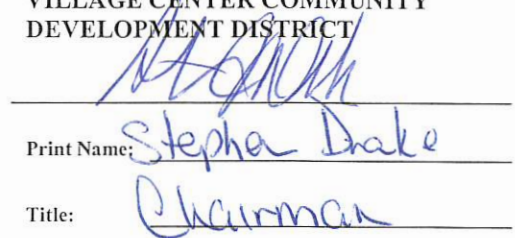 VILLAGE CENTER COMMUNITY
DEVELOPMENT DISTRICT
Print Name: Stephen Drake
Title: Chairman